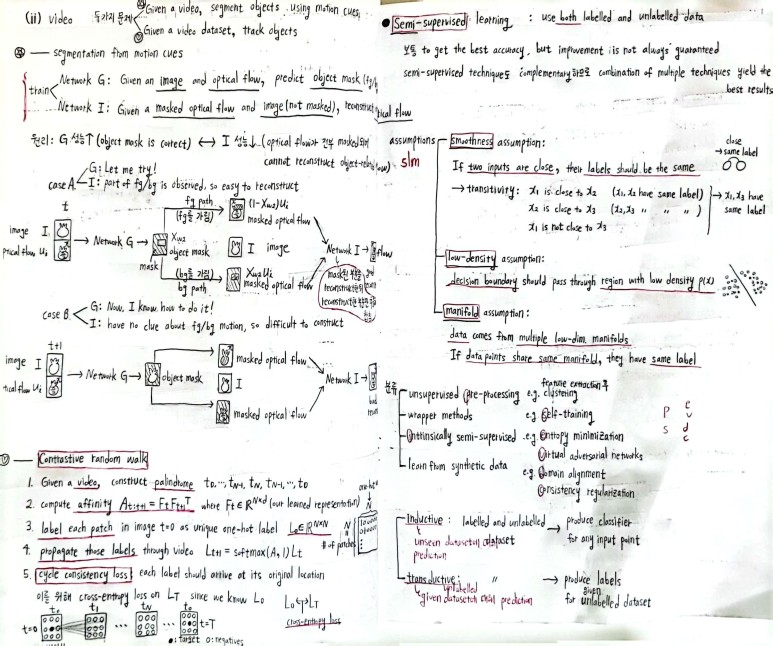 (ii) video 두가지 문제
ⓐ Given a video, segment objects using motion cues
ⓑ Given a video dataset, track objects
ⓐ — segmentation from motion cues
train
Network G: Given an image and optical flow, predict object mask (fg/b
Network I: Given a masked optical flow and image (not masked), reconstruct
tical flow
원리: G 성능↑ (object mask is correct) ↔ I 성능↓ (optical flow가 전부 masked되어
cannot reconstruct object-rela
case A
G: Let me try!
I: part of fg/bg is observed, so easy to reconstruct
t
fg path
(fg를 가림)
(1-Xw2)Ui
masked optical flow
image I
ptical flow Ui
→ Network G →
Xw2
object mask
mask
I image
Network I →
flow
(bg를 가림)
bg path
Xw2 Ui
masked optical flow
mask된
reconstruct
reconstruct한
case B
G: Now, I know how to do it!
I: have no clue about fg/bg motion, so difficult to construct
t+1
image I
tical flow Ui
→ Network G →
object mask
masked optical flow
I
masked optical flow
Network I →
bad
ⓑ — Contrastive random walk
1. Given a video, construct palindrome t0, ..., tN-1, tN, tN-1, ..., t0
2. compute affinity At:t+1 = Ft Ft+1^T where Ft ∈ R^N×d (our learned representation)
3. label each patch in image t=0 as unique one-hot label L0 ∈ R^N×N
one-hot
N
N
# of patches
4. propagate those labels through video Lt+1 = softmax(A, 1) Lt
5. cycle consistency loss: each label should arrive at its original location
이를 위해 cross-entropy loss on LT since we know L0
L0 ↔ LT
cross-entropy loss
t0 t1 tN t0
t=0 ... ... t=T
●: target ○: negatives
● Semi-supervised learning : use both labelled and unlabelled data
보통 to get the best accuracy, but improvement is not always guaranteed
semi-supervised technique들 complementary하므로 combination of multiple techniques yield the
best results
assumptions
slm
smoothness assumption:
close
→ same label
If two inputs are close, their labels should be the same
→ transitivity: x1 is close to x2 (x1, x2 have same label)
x2 is close to x3 (x2, x3 〃 〃 〃)
x1 is not close to x3
→ x1, x3 have
same label
low-density assumption:
decision boundary should pass through region with low density p(x)
manifold assumption:
data comes from multiple low-dim. manifolds
If data points share same manifold, they have same label
분류
feature extraction 후
unsupervised pre-processing e.g. clustering
wrapper methods e.g. self-training
Intrinsically semi-supervised e.g. Entropy minimization
Virtual adversarial networks
learn from synthetic data e.g. Domain alignment
Consistency regularization
p e
v
s d
c
Inductive : labelled and unlabelled
dataset
→ produce classifier
for any input point
unseen dataset
prediction
transductive : 〃
→ produce labels
given
for unlabelled dataset
unlabelled
given dataset prediction